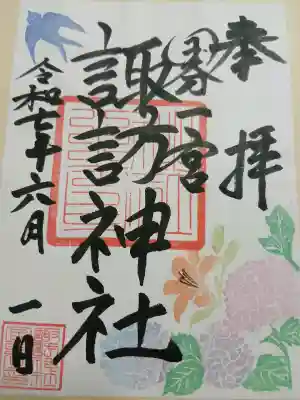 奉拝
一宮
諏訪神社
令和七年六月一日